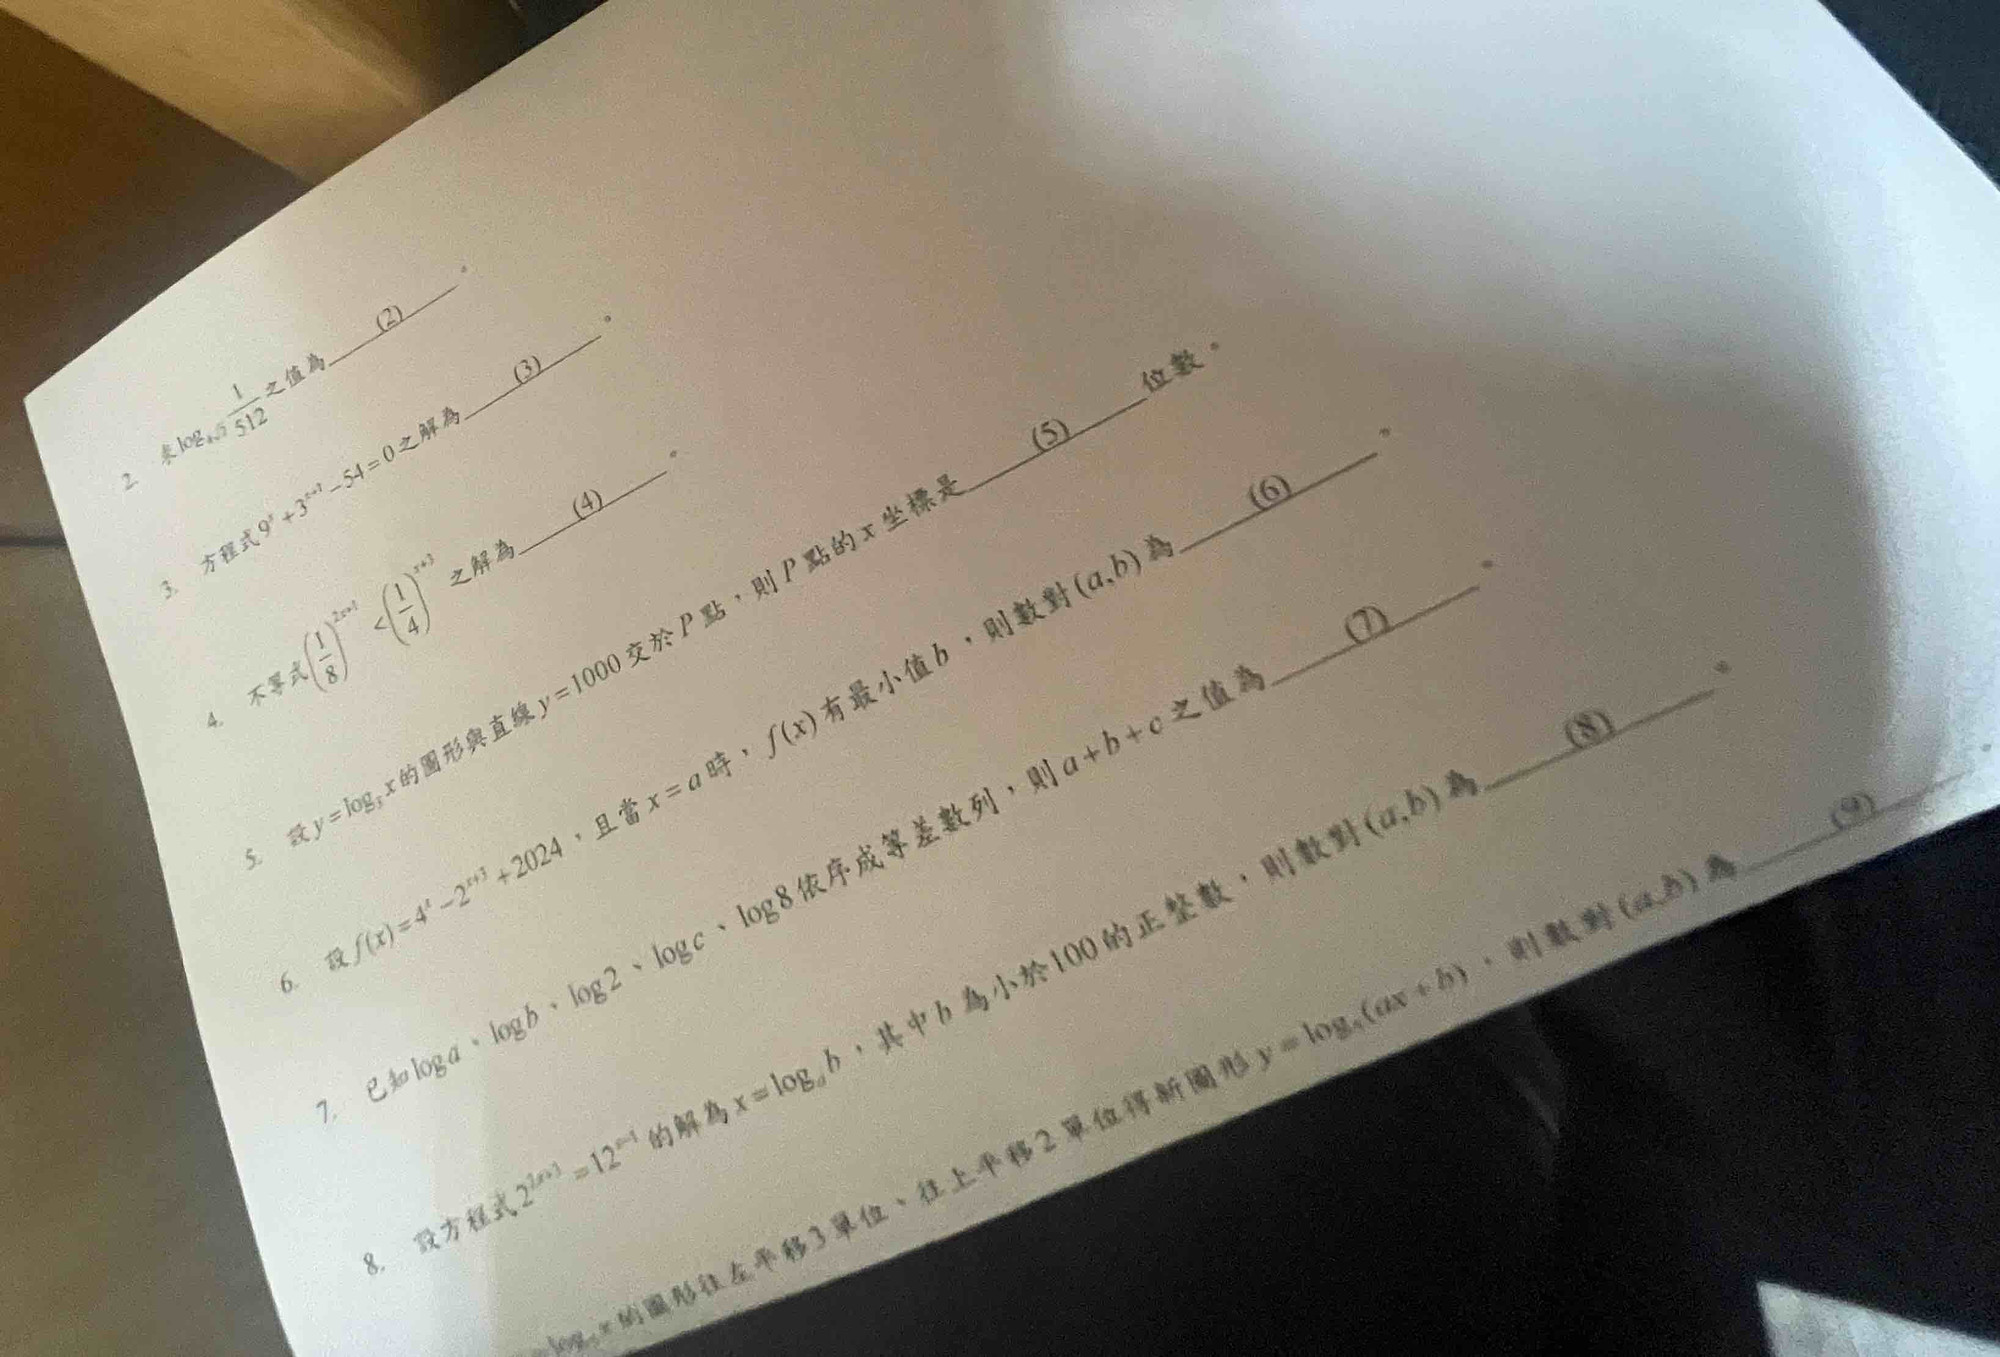 2. 求 log 1/512 之值為 (2) 。
3. 方程式 9^x + 3^(x+1) − 54 = 0 之解為 (3) 。
4. 不等式 (1/8)^(2x+1) < (1/4)^(x+3) 之解為 (4) 。
5. 設 y = log x 的圖形與直線 y = 1000 交於 P 點,則 P 點的 x 坐標是 (5) 位數。
6. 設 f(x) = 4^x − 2^(x+3) + 2024,且當 x = a 時,f(x) 有最小值 b,則數對 (a,b) 為 (6) 。
7. 已知 log a、log b、log 2、log c、log 8 依序成等差數列,則 a + b + c 之值為 (7) 。
8. 設方程式 2^(2x+3) = 12^(x−1) 的解為 x = log_a b,其中 b 為小於 100 的正整數,則數對 (a,b) 為 (8) 。
x 的圖形往左平移 3 單位、往上平移 2 單位得新圖形 y = log (ax + b),則數對 (a,b) 為 (9)